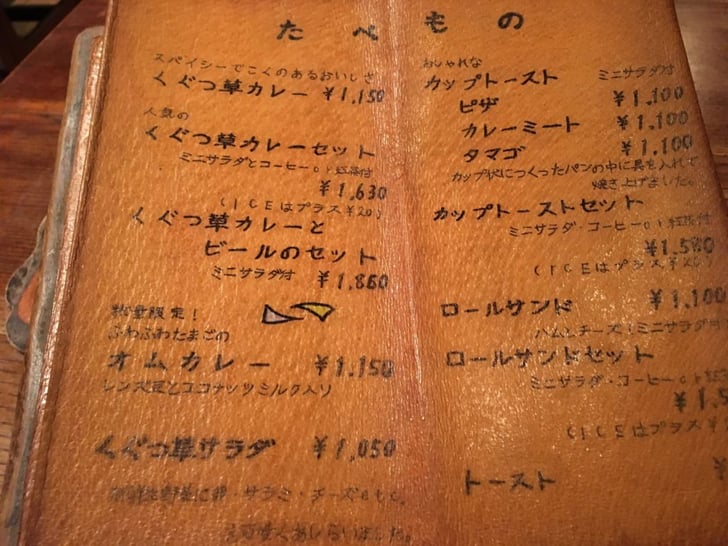 たべもの
スパイシーでこくのあるおいしさ
くぐつ草カレー ¥1,150
人気の
くぐつ草カレーセット
ミニサラダとコーヒーor紅茶付
¥1,630
(ICEはプラス¥20)
くぐつ草カレーと
ビールのセット
ミニサラダ付 ¥1,860
数量限定!
ふわふわたまごの
オムカレー ¥1,150
レンズ豆とココナッツミルク入り
くぐつ草サラダ ¥1,050
・サラミ・チーズetc.
おしゃれな
カップトースト ミニサラダ付
ピザ ¥1,100
カレーミート ¥1,100
タマゴ ¥1,100
カップ状につくったパンの中に具を入れて
焼き上げました。
カップトーストセット
ミニサラダ・コーヒーor紅茶付
(ICEはプラス
ロールサンド ¥1,100
ハムとチーズ ミニサラダ
ロールサンドセット
ミニサラダ・コーヒーor
(ICEはプラス
トースト